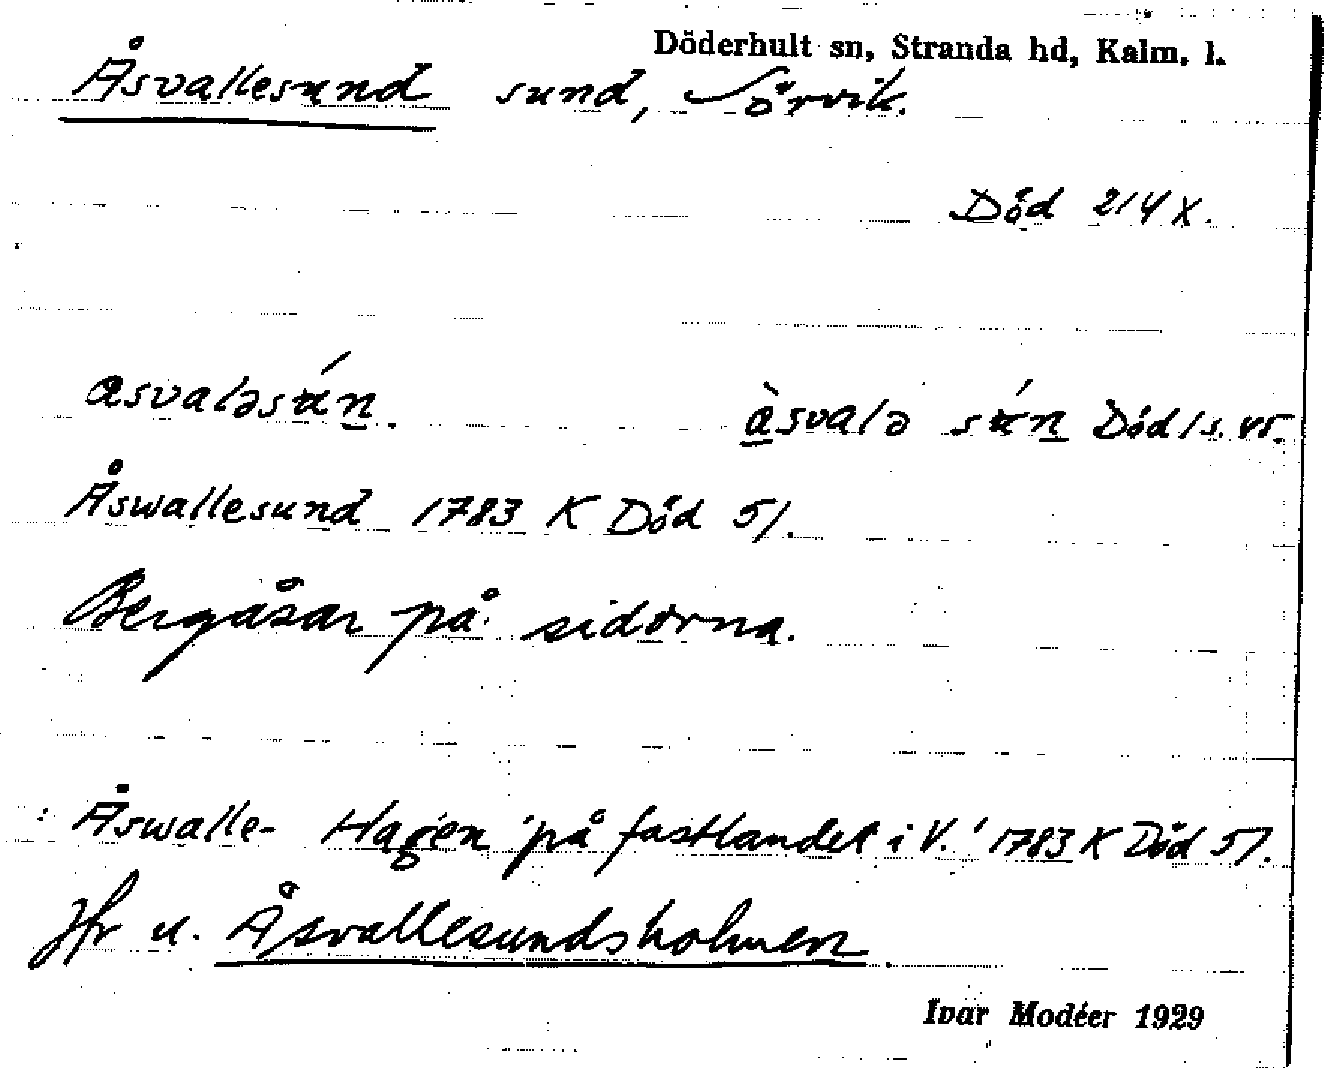 Döderhult sn, Stranda hd, Kalm. l.
Åsvallesund sund, Sörvik.
Död 214 X.
asvaləsún. àsvalə sún Död 1 s. 45.
Åswallesund 1783 K Död 51.
Bergåsar på sidorna.
Åswalle- Hagen 'på fastlandet i V.' 1783 K Död 51.
Jfr u. Åsvallesundsholmen.
Ivar Modéer 1929